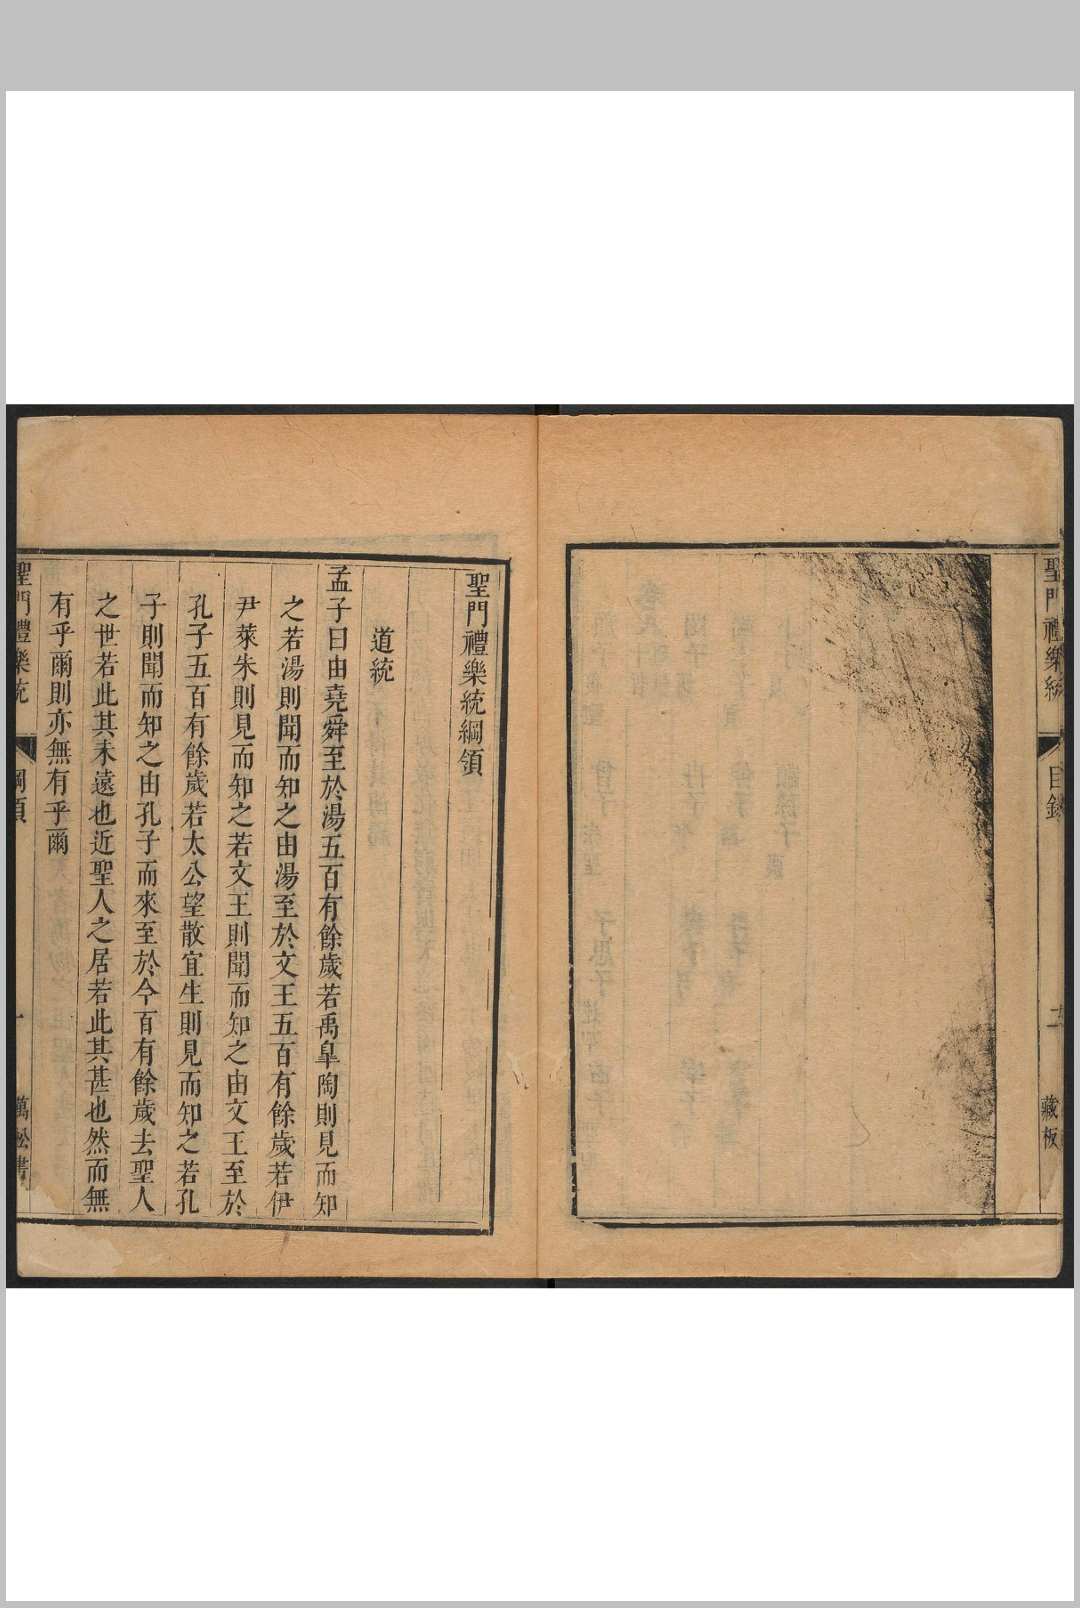 聖門禮樂統
目錄
藏板
聖門禮樂統綱領
道統
孟子曰由堯舜至於湯五百有餘歲若禹臯陶則見而知
之若湯則聞而知之由湯至於文王五百有餘歲若伊
尹萊朱則見而知之若文王則聞而知之由文王至於
孔子五百有餘歲若太公望散宜生則見而知之若孔
子則聞而知之由孔子而來至於今百有餘歲去聖人
之世若此其未遠也近聖人之居若此其甚也然而無
有乎爾則亦無有乎爾
聖門禮樂統
綱領
一
萬松書